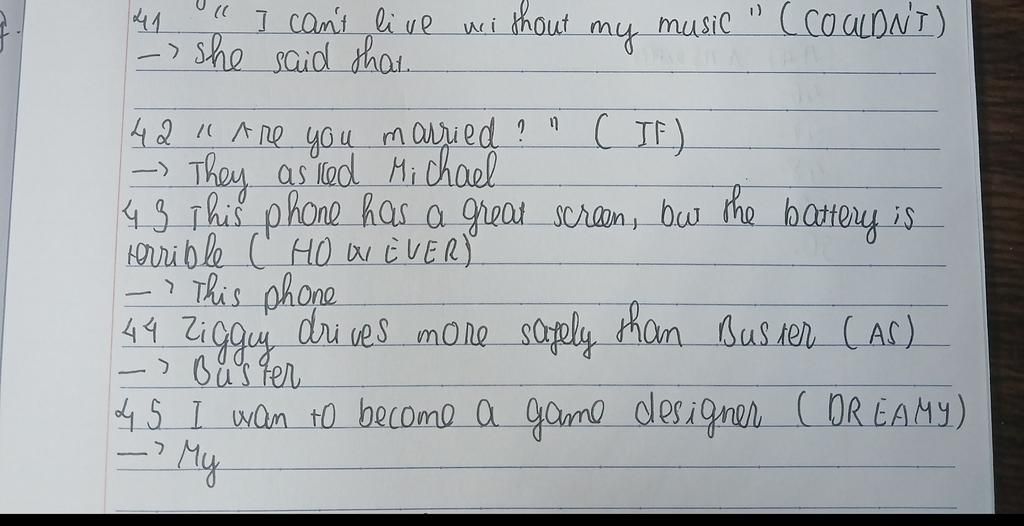 41 " I can't live without my music " (COULDN'T)
-> She said that.
42 " Are you married? " ( IF)
-> They asked Michael
43 This phone has a great screen, but the battery is
terrible ( HOWEVER)
-> This phone
44 Ziggy drives more safely than Buster (AS)
-> Buster
45 I wan to become a game designer ( DREAMY)
-> My